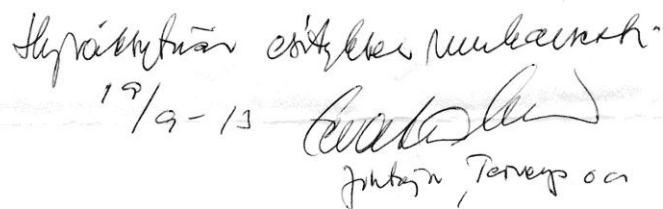 Hyväksytään esityksen mukaisesti.
19/9-13
Johtaja, Terveys oa